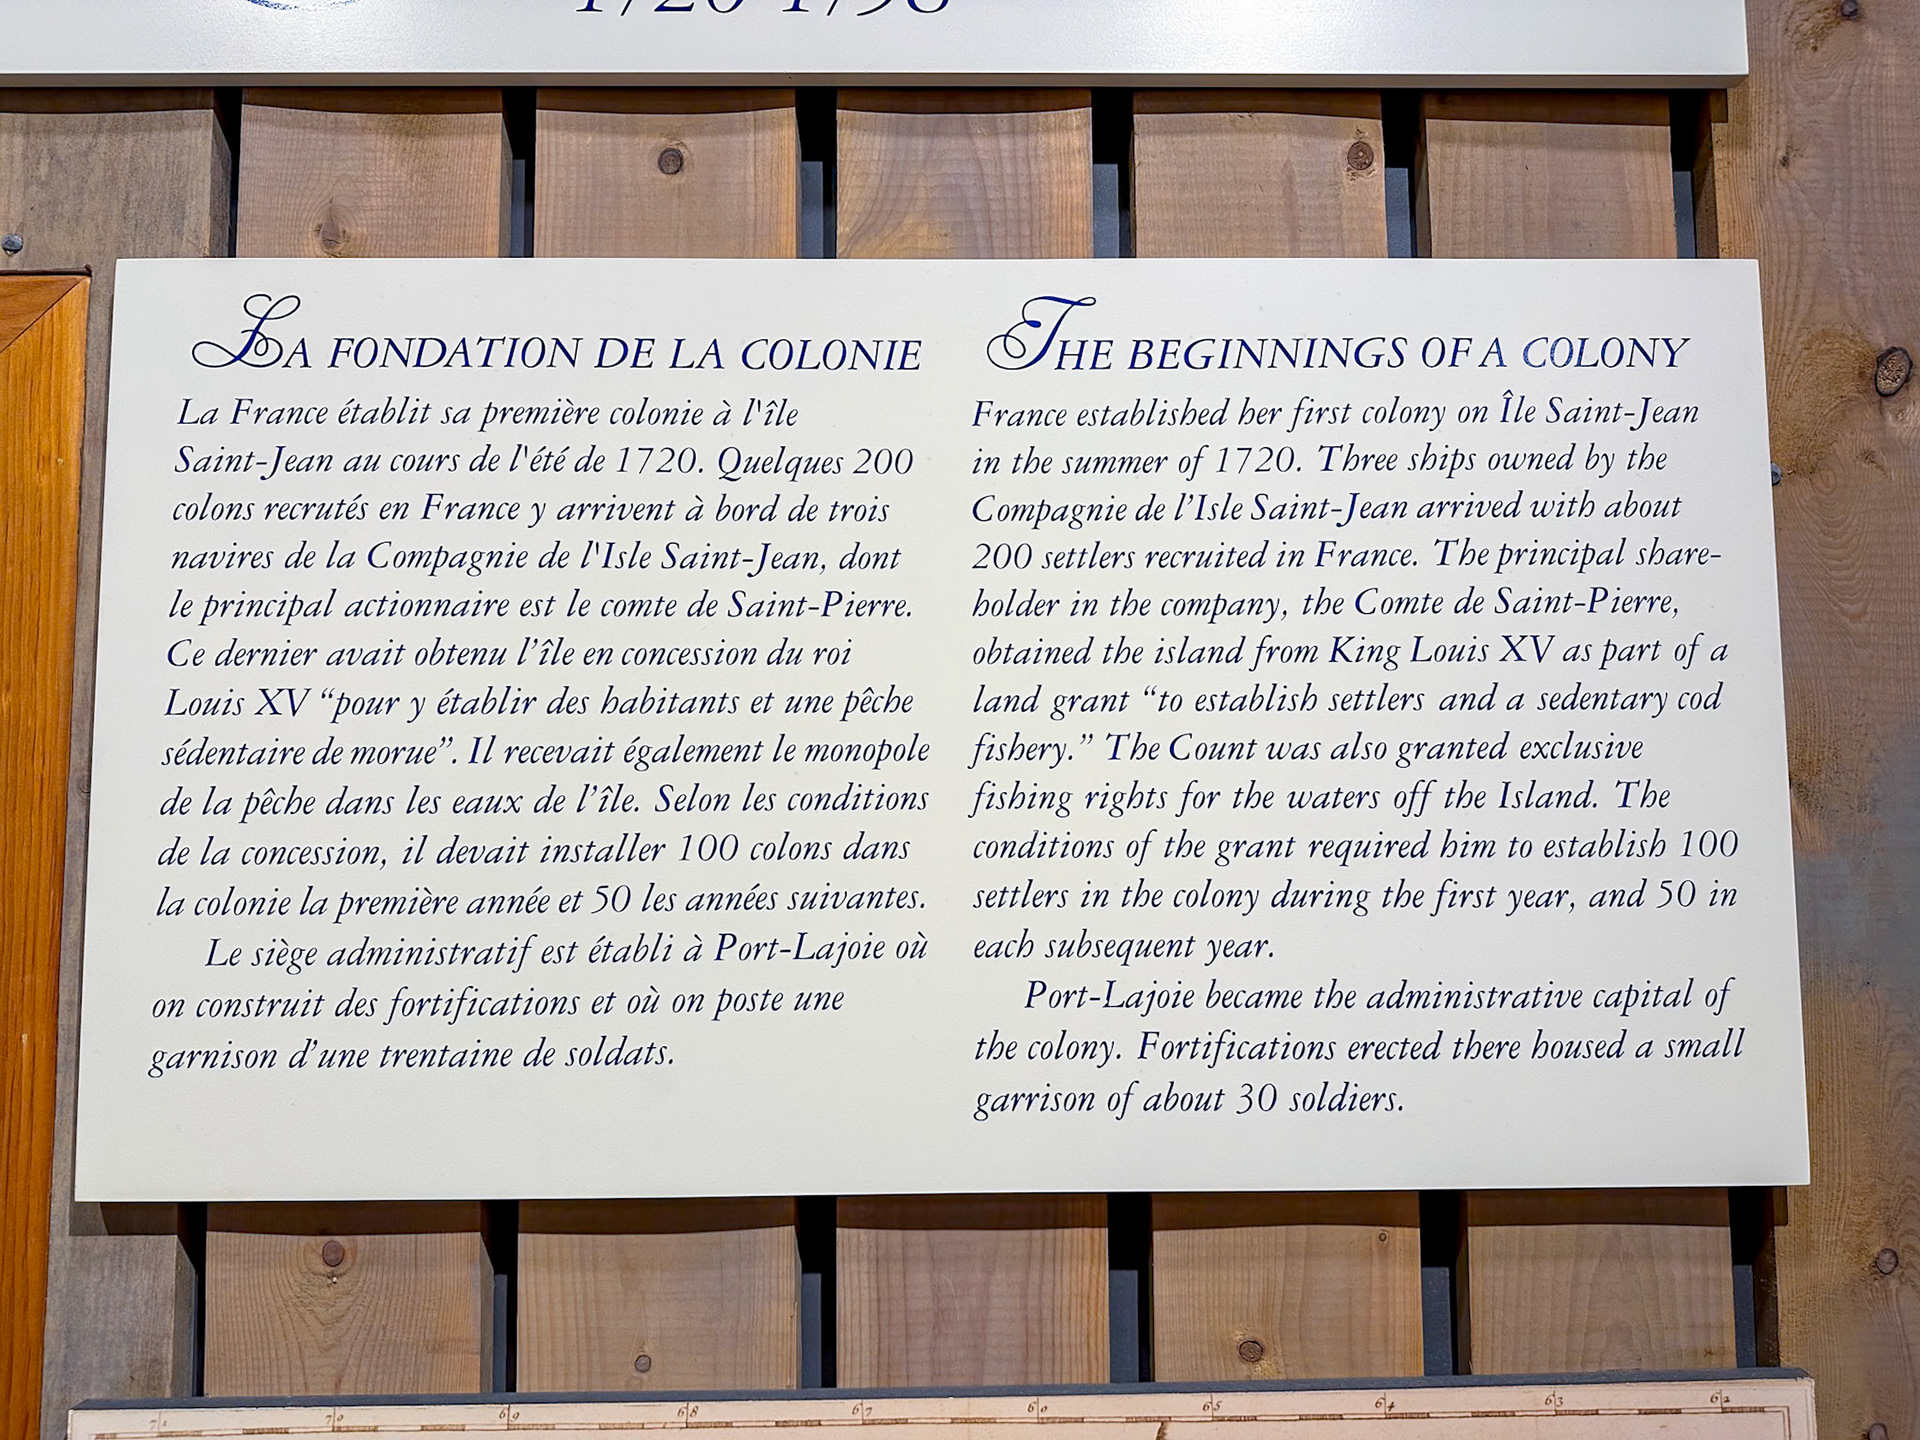 La fondation de la colonie
La France établit sa première colonie à l'île
Saint-Jean au cours de l'été de 1720. Quelques 200
colons recrutés en France y arrivent à bord de trois
navires de la Compagnie de l'Isle Saint-Jean, dont
le principal actionnaire est le comte de Saint-Pierre.
Ce dernier avait obtenu l’île en concession du roi
Louis XV “pour y établir des habitants et une pêche
sédentaire de morue”. Il recevait également le monopole
de la pêche dans les eaux de l’île. Selon les conditions
de la concession, il devait installer 100 colons dans
la colonie la première année et 50 les années suivantes.
Le siège administratif est établi à Port-Lajoie où
on construit des fortifications et où on poste une
garnison d’une trentaine de soldats.
The beginnings of a colony
France established her first colony on Île Saint-Jean
in the summer of 1720. Three ships owned by the
Compagnie de l’Isle Saint-Jean arrived with about
200 settlers recruited in France. The principal share-
holder in the company, the Comte de Saint-Pierre,
obtained the island from King Louis XV as part of a
land grant “to establish settlers and a sedentary cod
fishery.” The Count was also granted exclusive
fishing rights for the waters off the Island. The
conditions of the grant required him to establish 100
settlers in the colony during the first year, and 50 in
each subsequent year.
Port-Lajoie became the administrative capital of
the colony. Fortifications erected there housed a small
garrison of about 30 soldiers.